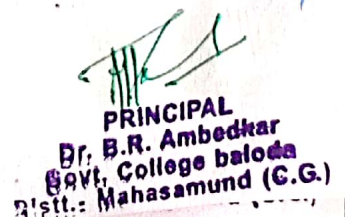 PRINCIPAL
Dr. B.R. Ambedkar
Govt, College baloda
Distt.: Mahasamund (C.G.)